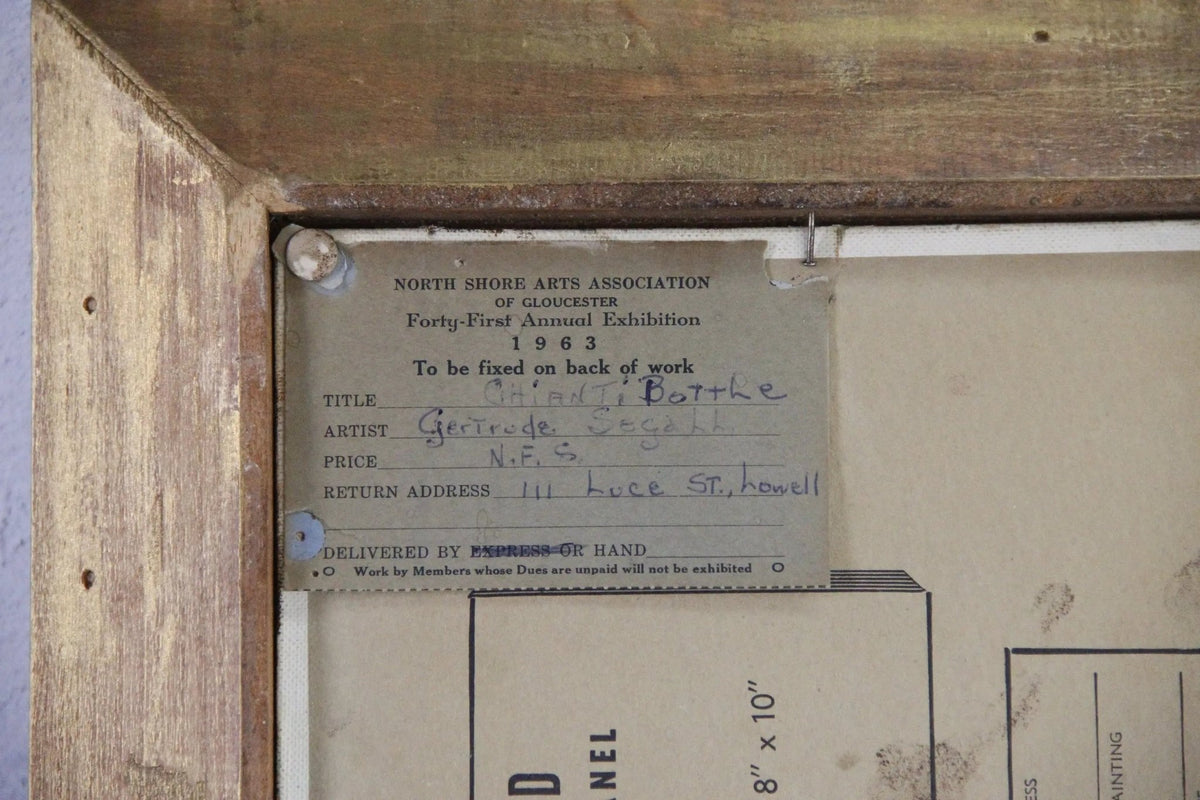 NORTH SHORE ARTS ASSOCIATION
OF GLOUCESTER
Forty-First Annual Exhibition
1963
To be fixed on back of work
TITLE CHIANTi BOTTLE
ARTIST Gertrude Segall
PRICE N.F.S.
RETURN ADDRESS 111 Luce ST., Lowell
DELIVERED BY EXPRESS OR HAND
Work by Members whose Dues are unpaid will not be exhibited
D
ANEL
8" x 10"
ESS
AINTING